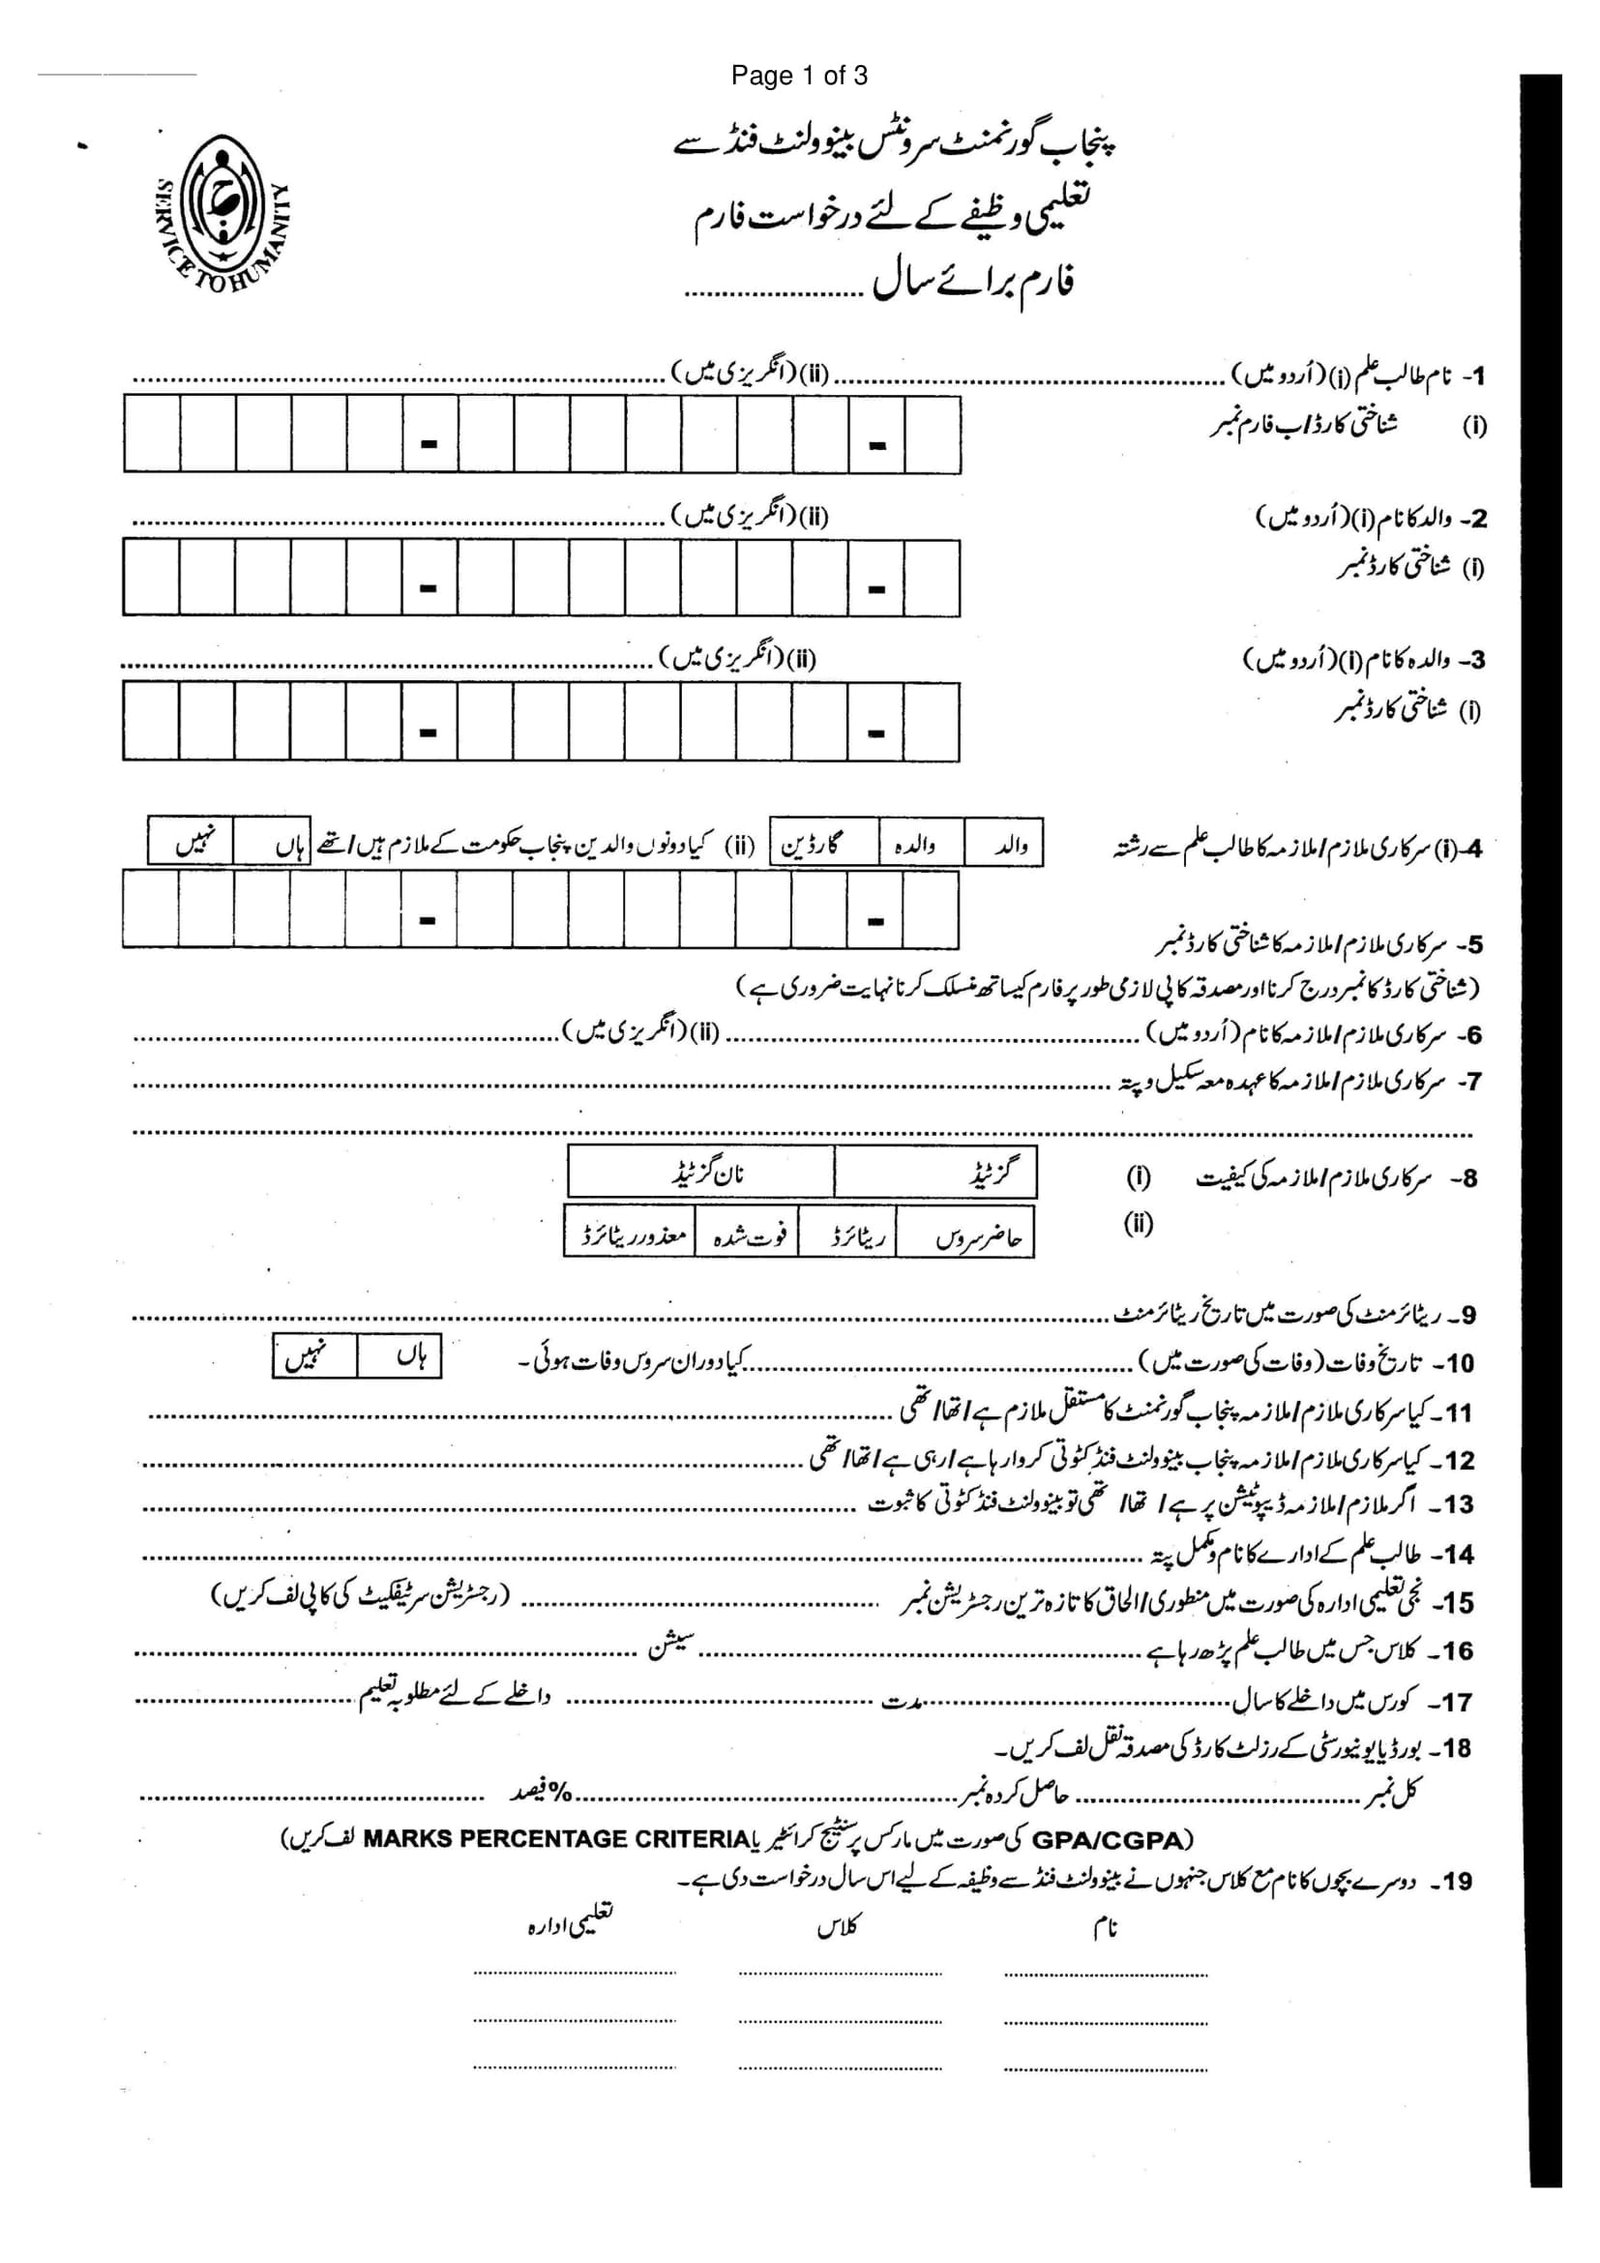 Page 1 of 3
SERVICE TO HUMANITY
پنجاب گورنمنٹ سرونٹس بینوولنٹ فنڈ سے
تعلیمی وظیفے کے لئے درخواست فارم
فارم برائے سال ......................
1- نام طالب علم (i) (اُردو میں) ...................... (ii) (انگریزی میں) ......................
(i) شناختی کارڈ/ب فارم نمبر - -
2- والد کا نام (i) (اُردو میں) (ii) (انگریزی میں) ......................
(i) شناختی کارڈ نمبر - -
3- والدہ کا نام (i) (اُردو میں) (ii) (انگریزی میں) ......................
(i) شناختی کارڈ نمبر - -
4-(i) سرکاری ملازم/ملازمہ کا طالب علم سے رشتہ والد والدہ گارڈین (ii) کیا دونوں والدین پنجاب حکومت کے ملازم ہیں/تھے ہاں نہیں
5- سرکاری ملازم/ملازمہ کا شناختی کارڈ نمبر - -
(شناختی کارڈ کا نمبر درج کرنا اور مصدقہ کاپی لازمی طور پر فارم کیساتھ منسلک کرنا نہایت ضروری ہے)
6- سرکاری ملازم/ملازمہ کا نام (اُردو میں) ...................... (ii) (انگریزی میں) ......................
7- سرکاری ملازم/ملازمہ کا عہدہ معہ سکیل و پتہ ......................
......................
8- سرکاری ملازم/ملازمہ کی کیفیت (i) گزٹیڈ نان گزٹیڈ
(ii) حاضر سروس ریٹائرڈ فوت شدہ معذور ریٹائرڈ
9- ریٹائرمنٹ کی صورت میں تاریخ ریٹائرمنٹ ......................
10- تاریخ وفات (وفات کی صورت میں) ...................... کیا دوران سروس وفات ہوئی۔ ہاں نہیں
11- کیا سرکاری ملازم/ملازمہ پنجاب گورنمنٹ کا مستقل ملازم ہے/تھا/تھی ......................
12- کیا سرکاری ملازم/ملازمہ پنجاب بینوولنٹ فنڈ کٹوتی کروا رہا ہے/رہی ہے/تھا/تھی ......................
13- اگر ملازم/ملازمہ ڈیپوٹیشن پر ہے/ تھا/ تھی تو بینوولنٹ فنڈ کٹوتی کا ثبوت ......................
14- طالب علم کے ادارے کا نام و مکمل پتہ ......................
15- نجی تعلیمی ادارہ کی صورت میں منظوری/الحاق کا تازہ ترین رجسٹریشن نمبر ...................... (رجسٹریشن سرٹیفکیٹ کی کاپی لف کریں)
16- کلاس جس میں طالب علم پڑھ رہا ہے ...................... سیشن ......................
17- کورس میں داخلے کا سال ...................... مدت ...................... داخلے کے لئے مطلوبہ تعلیم ......................
18- بورڈ یا یونیورسٹی کے رزلٹ کارڈ کی مصدقہ نقل لف کریں۔
کل نمبر ...................... حاصل کردہ نمبر ...................... %فیصد ......................
(GPA/CGPA کی صورت میں مارکس پرسنٹیج کرائٹیر یا MARKS PERCENTAGE CRITERIA لف کریں)
19- دوسرے بچوں کا نام مع کلاس جنہوں نے بینوولنٹ فنڈ سے وظیفہ کے لیے اس سال درخواست دی ہے۔
نام کلاس تعلیمی ادارہ
...................... ...................... ......................
...................... ...................... ......................
...................... ...................... ......................